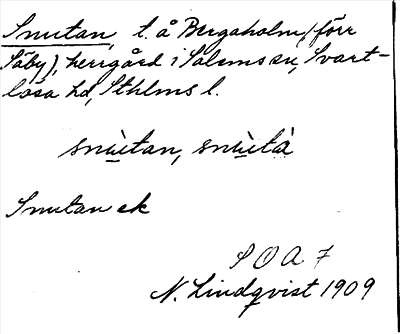 Smutan, t. å Bergaholm (förr
Säby), herrgård i Salems sn, Svart-
lösa hd, Sthlms l.
smu̱tan, smu̱tà
Smutan ek
S O A 7
N. Lindqvist 1909